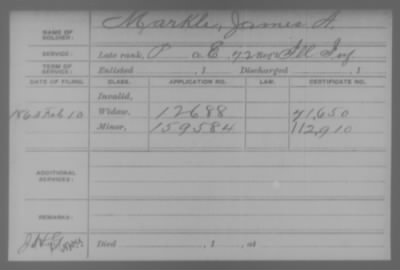 NAME OF SOLDIER: Markle, James A.
SERVICE: Late rank, P Co E, 72 Reg't Ill Inf
TERM OF SERVICE: Enlisted , 1 Discharged , 1
DATE OF FILING. CLASS. APPLICATION NO. LAW. CERTIFICATE NO.
Invalid,
Feb 10 Widow, 12688 41,650
Minor, 159584 112,910
ADDITIONAL SERVICES:
REMARKS:
Died , 1 , at